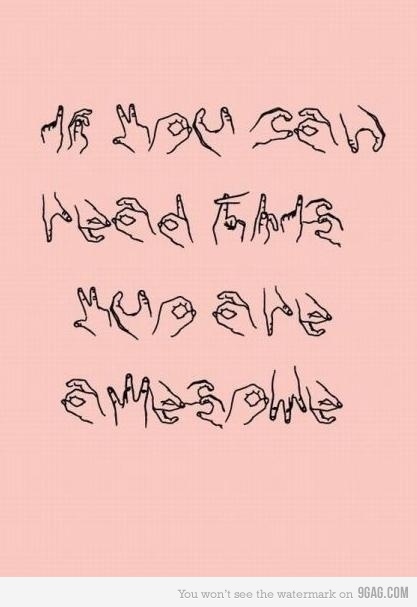 if you can
read this
yuo are
amesowe
You won't see the watermark on 9GAG.COM